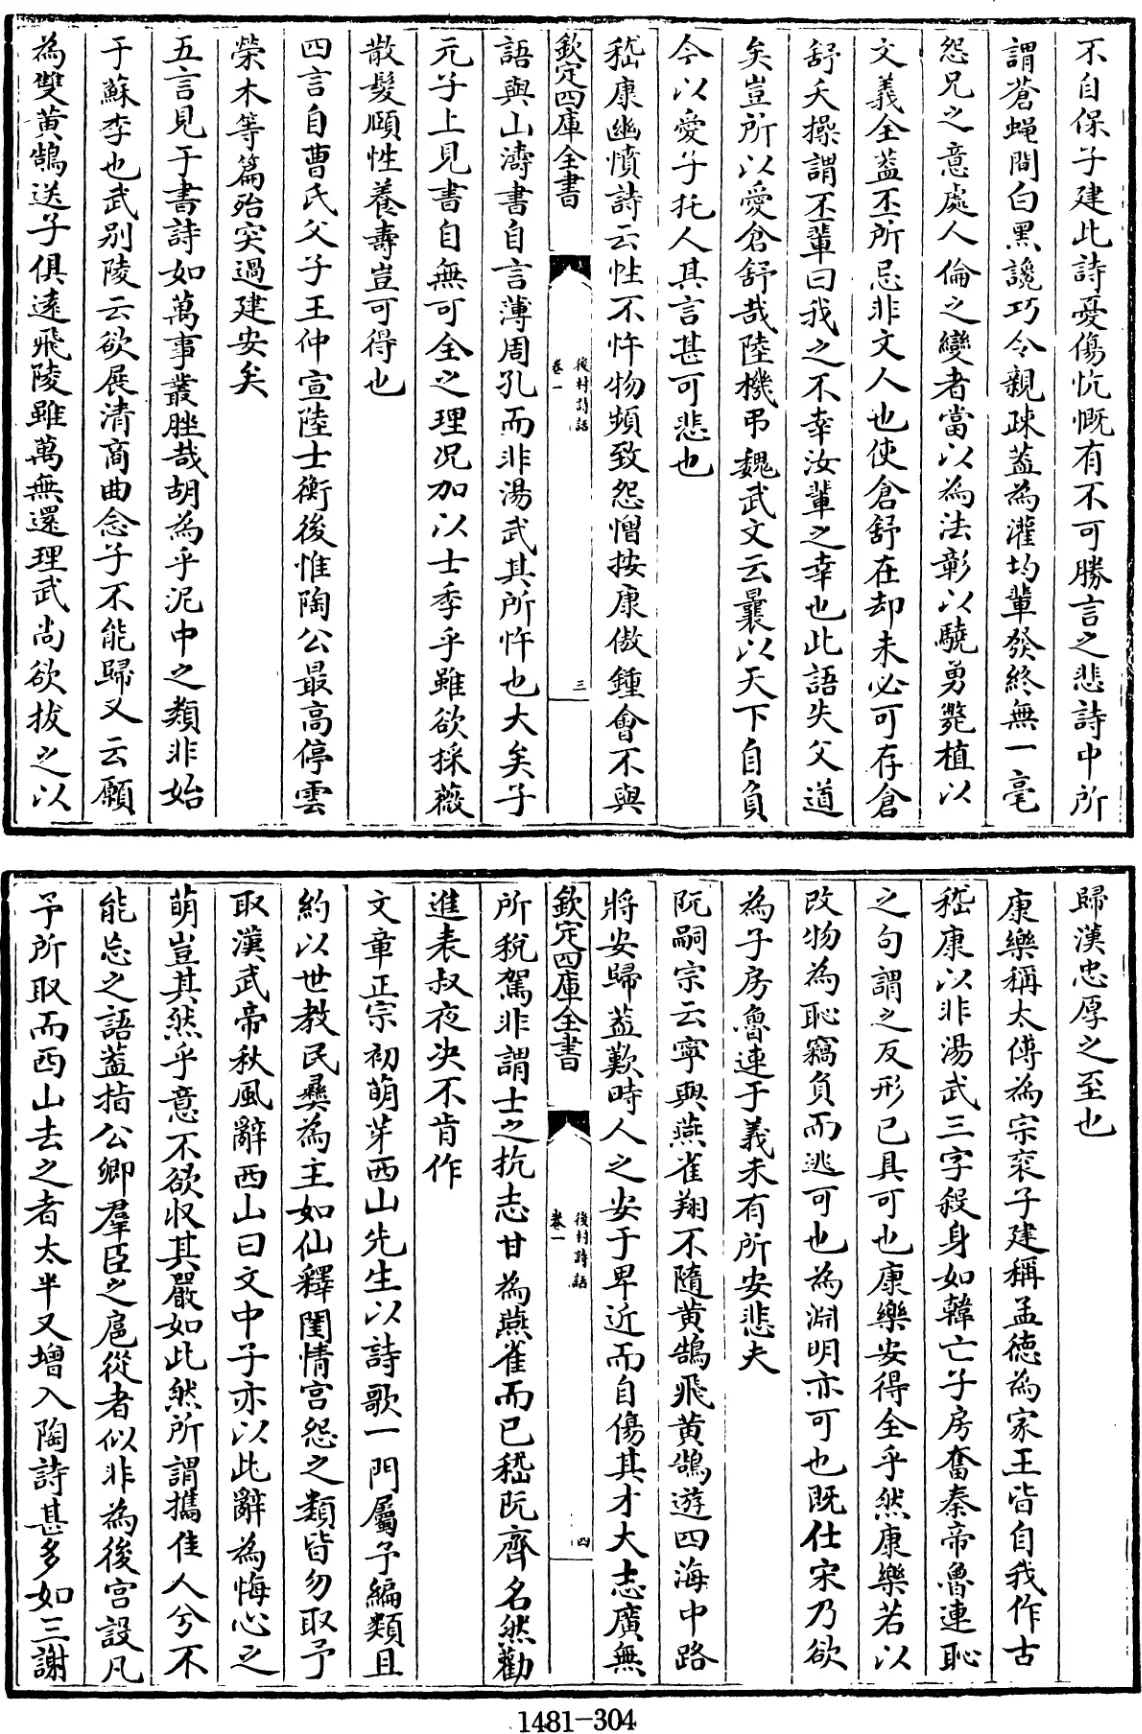 不自保子建此詩憂傷忼慨有不可勝言之悲詩中所
謂蒼蠅間白黑讒巧令親疎葢為灌均輩發終無一毫
怨兄之意處人倫之變者當以為法彰以驍勇斃植以
文義全葢丕所忌非文人也使倉舒在却未必可存倉
舒夭操謂丕輩曰我之不幸汝輩之幸也此語失父道
矣豈所以愛倉舒哉陸機弔魏武文云曩以天下自負
今以愛子托人其言甚可悲也
嵇康幽憤詩云性不忤物頻致怨憎按康傲鍾會不與
欽定四庫全書
後村詩話
卷一
三
語與山濤書自言薄周孔而非湯武其所忤也大矣子
元子上見書自無可全之理況加以士季乎雖欲採薇
散髮頤性養壽豈可得也
四言自曹氏父子王仲宣陸士衡後惟陶公最高停雲
榮木等篇殆突過建安矣
五言見于書詩如萬事叢脞哉胡為乎泥中之類非始
于蘇李也武别陵云欲展清商曲念子不能歸又云願
為雙黃鵠送子俱遠飛陵雖萬無還理武尚欲拔之以
歸漢忠厚之至也
康樂稱太傅為宗衮子建稱孟德為家王皆自我作古
嵇康以非湯武三字殺身如韓亡子房奮秦帝魯連恥
之句謂之反形已具可也康樂安得全乎然康樂若以
改物為恥竊負而逃可也為淵明亦可也既仕宋乃欲
為子房魯連于義未有所安悲夫
阮嗣宗云寧與燕雀翔不隨黃鵠飛黃鵠遊四海中路
將安歸葢歎時人之安于卑近而自傷其才大志廣無
欽定四庫全書
後村詩話
卷一
四
所稅駕非謂士之抗志甘為燕雀而已嵇阮齊名然勸
進表叔夜決不肯作
文章正宗初萌芽西山先生以詩歌一門屬予編類且
約以世教民彝為主如仙釋閨情宮怨之類皆勿取予
取漢武帝秋風辭西山曰文中子亦以此辭為悔心之
萌豈其然乎意不欲收其嚴如此然所謂攜佳人兮不
能忘之語葢指公卿羣臣之扈從者似非為後宮設凡
予所取而西山去之者太半又增入陶詩甚多如三謝
1481-304